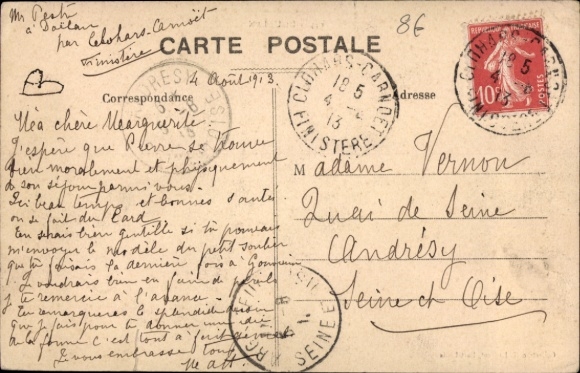 Mr
à
par Clohars-Carnoët
Finistère
CARTE POSTALE
86
4 Août 1913.
Correspondance
Adresse
CLOHARS-CARNOET
18 5
4 -8
13
FINISTERE
CLOHARS-CARNOET
18 5
4 -8
13
FINISTERE
10
POSTES
Ma chère Marguerite
J'espère que Pierre se trouve
bien moralement et physiquement
de son séjour parmi vous.
Ici beau temps et bonnes santés
on se fait du lard
Tu serais bien gentille si tu pouvais
m'envoyer le modèle du petit soulier
que tu faisais la dernière fois à
Je voudrais bien en faire de pareils
je te remercie à l'avance.
Tu remarqueras le splendide dessin
que je fais pour te donner une idée
de la forme c'est tout à fait
Je vous embrasse tous
M Madame Vernon
Quai de Seine
Andrésy
Seine et Oise
SEINE